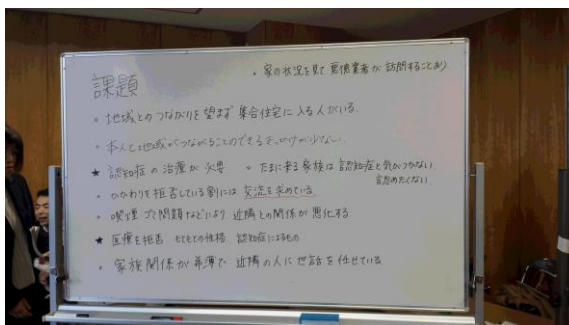 課題
・家の状況を見て悪徳業者が訪問することあり
・地域とのつながりを望まず集合住宅に入る人がいる。
・本人と地域がつながることのできるきっかけが少ない。
★認知症の治療が必要 ・たまに来る家族は認知症と気がつかない
認めたくない
・かかわりを拒否している割には交流を求めている。
・喫煙ゴミ問題などにより近隣との関係が悪化する
★医療を拒否 もともとの性格 認知症によるもの
・家族関係が希薄で近隣の人に世話を任せている